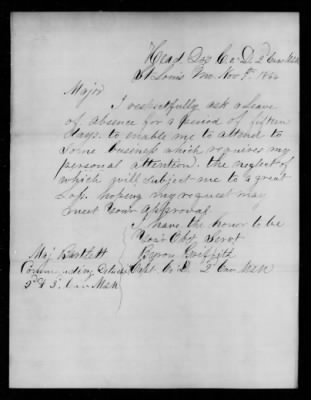 Head Qrs Co. D. 2" Cav MSM
St Louis Mo. Nov 9th 1864
Major
I respectfully ask a leave
of absence for a period of fifteen
days. to enable me to attend to
some business which requires my
personal attention. the neglect of
which will subject me to a great
loss. hoping my request may
meet Your Approval
I have the honor to be
Your Obt, Servt
Byron Griffith
Maj Bartlett
Capt. Co. D. 2" Cav MSM
Commanding Detach
2" & 3" Cav MSM